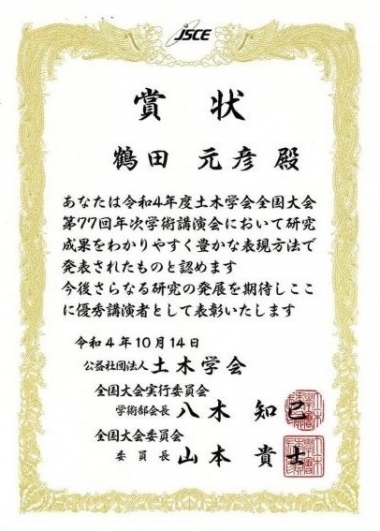 JSCE
賞 状
鶴田 元彦 殿
あなたは令和4年度土木学会全国大会
第77回年次学術講演会において研究
成果をわかりやすく豊かな表現方法で
発表されたものと認めます
今後さらなる研究の発展を期待しここ
に優秀講演者として表彰いたします
令和4年10月14日
公益社団法人 土木学会
全国大会実行委員会
学術部会長 八木 知己
全国大会委員会
委員長 山本 貴士